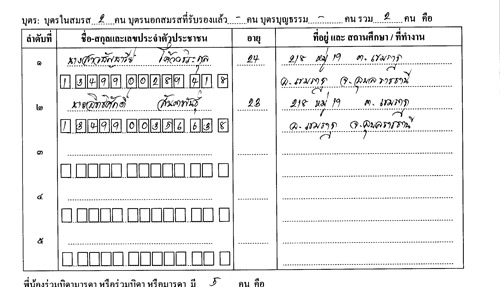 บุตร: บุตรในสมรส 2 คน บุตรนอกสมรสที่รับรองแล้ว - คน บุตรบุญธรรม - คน รวม 2 คน คือ
ลำดับที่ ชื่อ-สกุลและเลขประจำตัวประชาชน อายุ ที่อยู่ และ สถานศึกษา / ที่ทำงาน
๑ นางสาว 24 218 หมู่ 19 ต. เขมราฐ
1 3 4 9 9 0 0 2 8 9 4 1 8 อ. เขมราฐ จ. อุบลราชธานี
๒ 23 218 หมู่ 19 ต. เขมราฐ
1 3 4 9 9 0 0 3 5 6 6 3 8 อ. เขมราฐ จ. อุบลราชธานี
๓
๔
๕
พี่น้องร่วมบิดามารดา หรือร่วมบิดา หรือมารดา มี 5 คน คือ